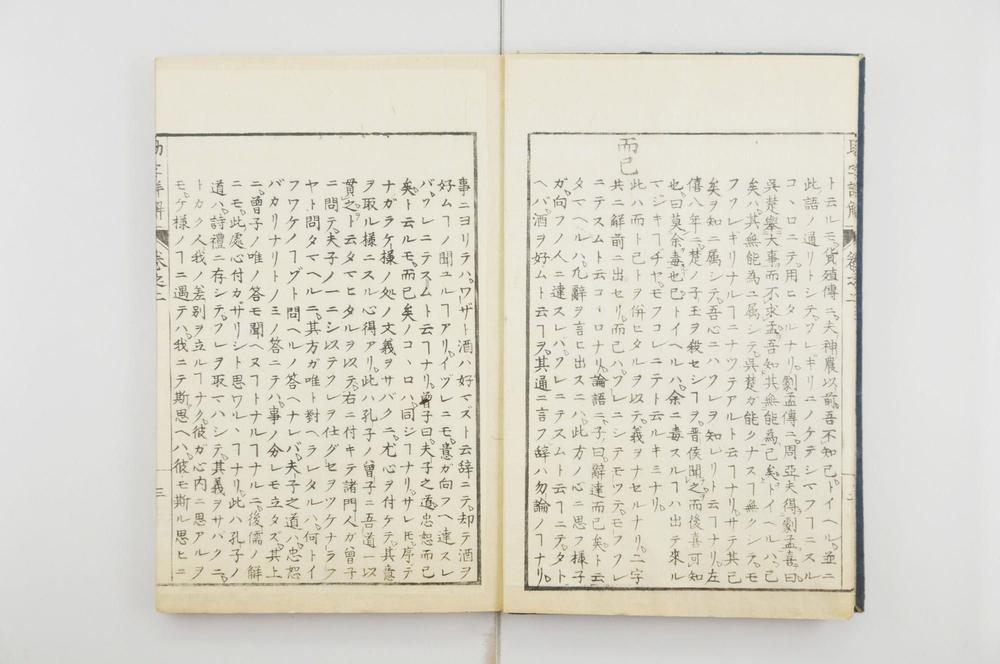 助字詳解
卷之二
三
而已
ト云ルモ、貨殖傳ニ、夫神農以前、吾不知已、トイヘル、並ニ
此語ノ通リトシテ、ソレギリニノケテシマフヿニスル
コヽロニテ、用ヒタルナリ、劇孟傳ニ、周亞夫得劇孟、喜曰
吳楚舉大事而不求孟、吾知其無能為已矣、トイヘルハ、已
矣ハ、其無能為ニ属シテ、吳楚ガ能クナスヿ無クシテ、モ
フソレギリナルヿニナツテアルト云ヿナリ、サテ其已
矣ヲ知ニ属シテ、吾心ニハソレヲ知レリト云ヿナリ、左
僖八年ニ、楚ノ子玉ヲ殺セシヿヲ、晋侯聞之而後喜可知
也、曰莫余毒也已、トイヘルハ、余ニ毒スルヿハ出テ來ル
マジキヿヂヤ、モフコレニテト云ルキミナリ、
此ハ而ト已トヲ併ヒタルヲ以テ、義ヲナセルナリ、二字
共ニ解前ニ出セリ、而已ハ、ソレニシテモツテ、モフソレ
ニテスムト云コヽロナリ、論語ニ、子曰、辭達而已矣、ト云
タマヘルハ、凢辭ヲ言ヒ出スニハ、此方ノ心ニ思フ様子
ガ、向フノ人ニ達スレバ、ソレニテスムト云ヿニテ、タト
ヘバ、酒ヲ好ムト云ヿヲ、其通ニ言フ辞ハ勿論ノヿナリ、
事ニヨリテハ、ワザト酒ハ好マズト云辞ニテ、却テ酒ヲ
好ムヿノ聞ユルヿアリ、イヅレニモ、意ガ向フヘ達スレ
バ、ソレニテスムト云ヿナリ、曾子曰、夫子之道、忠恕而已
矣、ト云ルモ、而已矣ノコヽロハ、同ジヿナリ、サレ𪜈序テ
ナガラケ様ノ処ノ文義ヲサバクニ、尤心ヲ付ケテ、其意
ヲ取ル様ニスル心得アリ、此ハ孔子ノ曾子ニ吾道一以
貫之、ト云タマヒタルヲ以テ、右ニ付キテ諸門人ガ曾子
ニ問テ、夫子ノ一ニシテソレヲ仕グセヲツケナラフ
ヤト問タマヘルニ、其方ガ唯ト對ヘラレタルハ、何トイ
フワケノヿゾト問ヘルノ答ヘナレバ、夫子之道ハ、忠恕
バカリナリトノミノ答ニテハ、事ノ分レモ立タズ、其上
ニ、曾子ノ唯ノ答モ聞ヘヌヿトナルヿナルニ、後儒ノ解
ニモ、此處心付カザリシト思ワルヽヿナリ、此ハ孔子ノ
道ハ、詩禮ニ存シテ、ソレヲ取マハシテ、其義ヲサバクニ、
トカク人我ノ差別ヲ立ルヿナク、彼ガ心内ニ思アルヲ
モ、ケ様ノヿニ遇テハ、我ニテ斯思ヘバ、彼モ斯ル思ヒニ
助字詳解
卷之二
三